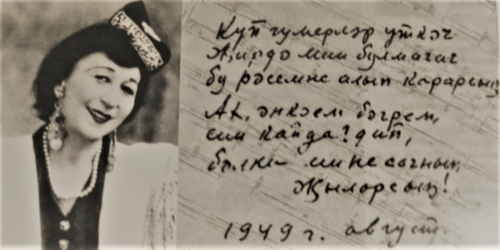 Күп гумерләр үткәч
Җирдә мин булмагач
бу рәсемне алып карарсың
Ах, әнкәем бәгрем,
син кайда? дип,
бәлки мине сагнып
Җыларсың!
1949 г. август.